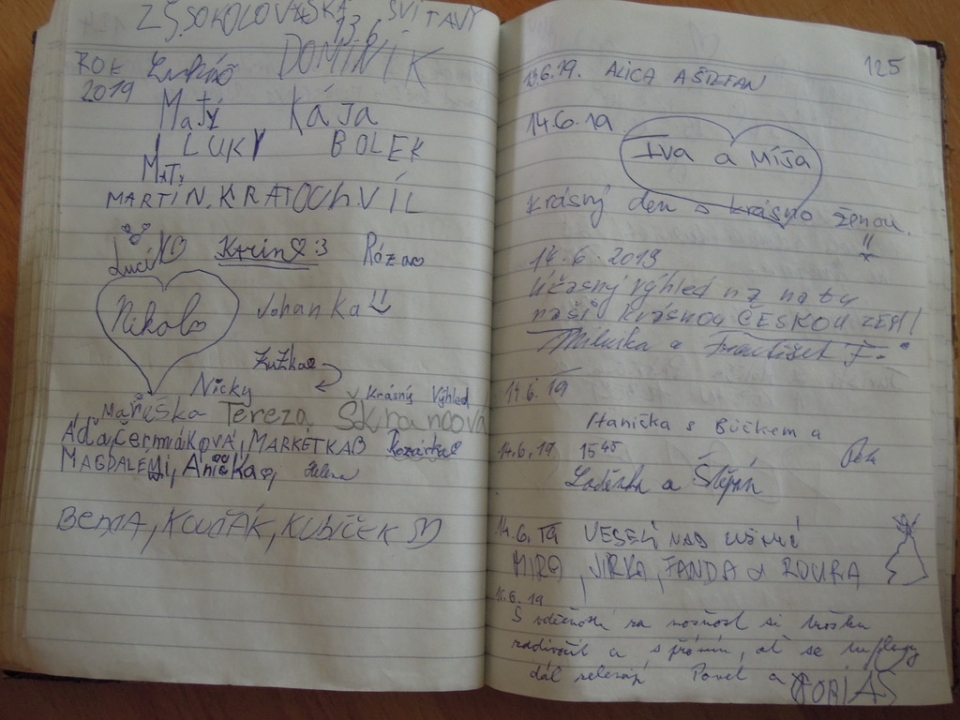 ZŠ SOKOLOVSKÁ SVITAVY
13.6
ROK 2019
DOMINIK
Maty KÁJA
LUKY BOLEK
Maty
MARTIN.KRATOCHVÍL
Lucík Karin :3 Róza
Nikola Johanka
Zuzka
Nicky Krásný výhled
Maruška Tereza Škrancová
Áďa, Čermáková, MARKETKAB
MAGDALENI, Anička, Helena
BEMA, KOUŤÁK, KUBÍČEK
125
13.6.19. ALICA A ŠTEFAN
14.6.19
Iva a Míša
krásný den s krásno ženou.
14.6.2019
Úžasný výhled na na tu
naši krásnou ČESKOU ZEMI!
Miluška a František F.
14.6.19
Hanička s
14.6.19 15 45
Laděnka a Štěpán
14.6.19 VESELÍ NAD
MIRA, JIRKA, FANDA a ROURA
15.6.19
S za možnost si trošku
a s přáním, ať se
dál Pavel a TOBIÁS